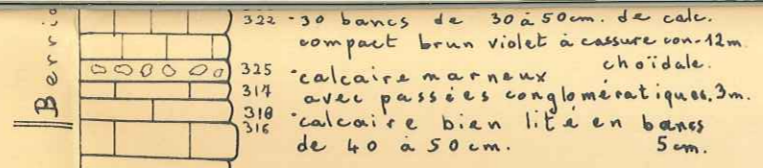 Berria
322 - 30 bancs de 30 à 50cm. de calc.
compact brun violet à cassure con- 12m.
choïdale.
325 - calcaire marneux
317 avec passées conglomératiques. 3m.
318 - calcaire bien lité en bancs
316 de 40 à 50cm. 5cm.